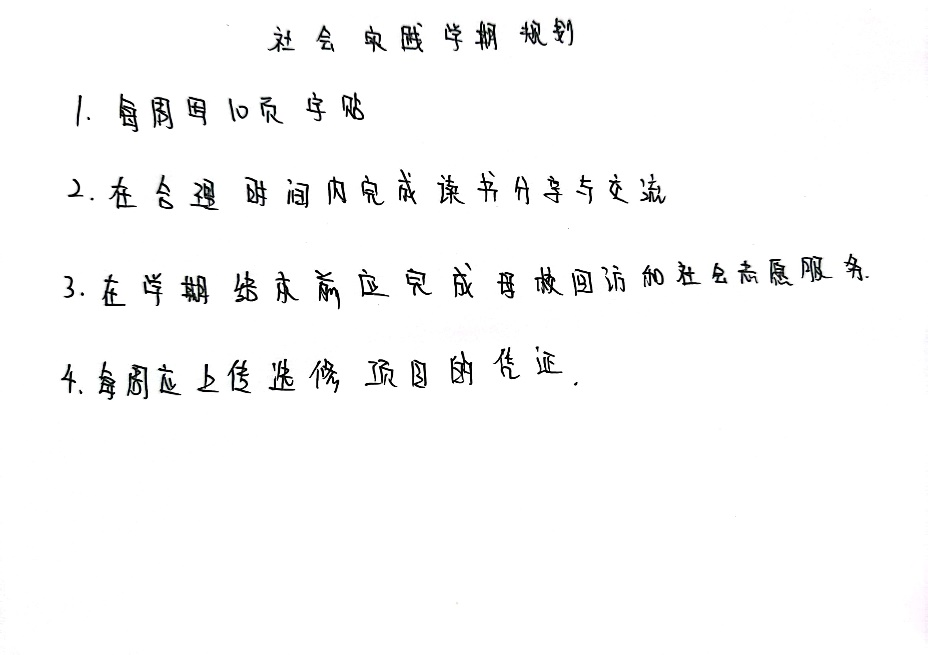 社会实践学期规划
1. 每周四10页字贴
2. 在合理时间内完成读书分享与交流
3. 在学期结束前应完成母校回访和社会志愿服务.
4. 每周应上传选修项目的凭证.